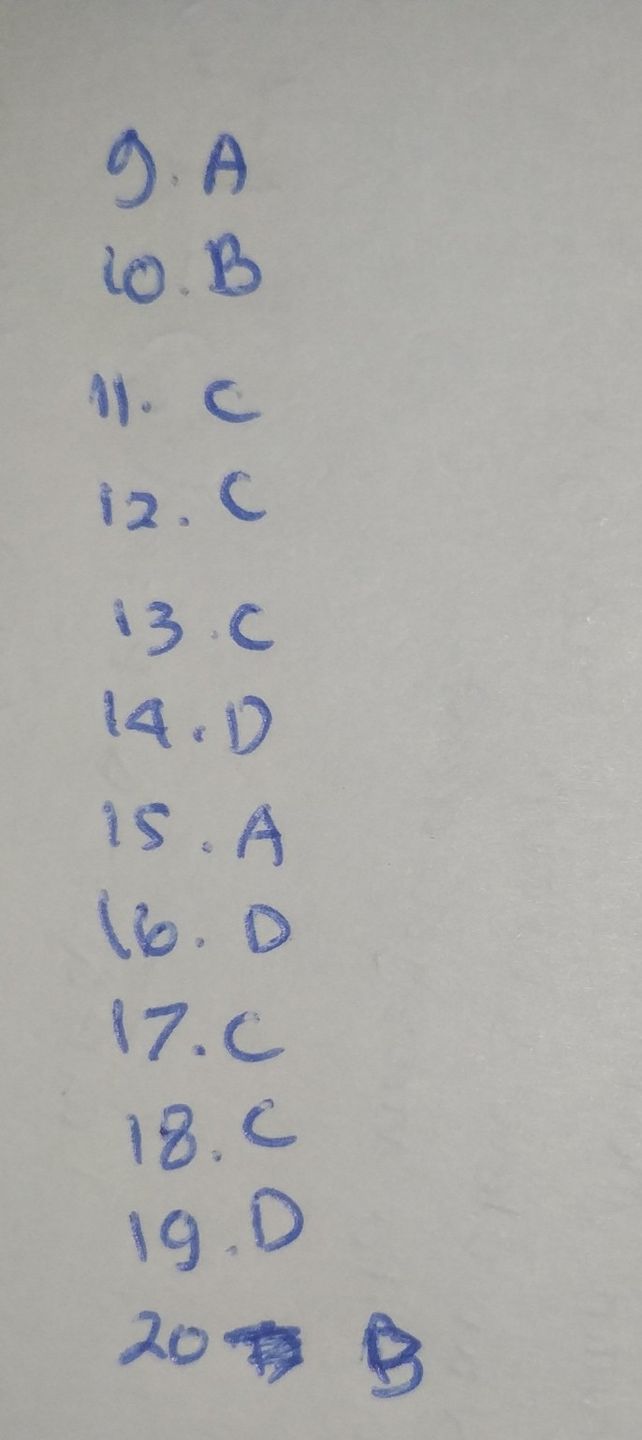 9. A
10. B
11. C
12. C
13. C
14. D
15. A
16. D
17. C
18. C
19. D
20 B